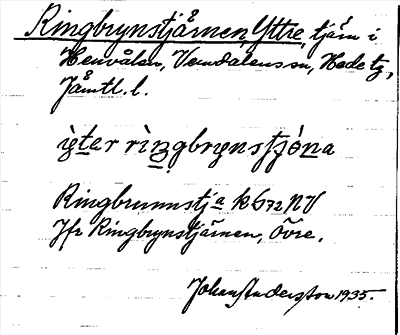 Ringbrynstjärnen, Yttre, tjärn i
Henvålen, Vemdalens sn, Hede tg,
Jämtl. l.
yter ringbrynstjòna
Ringbrunnstja k G72 NV
Jfr Ringbrynstjärnen, Övre.
Johan Anderson 1935.